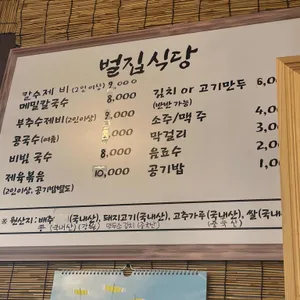 벌집식당
칼수제비 (2인이상) 9,000
메밀칼국수 8,000
부추수제비(2인이상) 9,000
콩국수(여름) ,000
비빔 국수 8,000
제육볶음 10,000
(2인이상, 공기밥별도)
김치 or 고기만두 6,0
(반반 가능)
소주/맥주 4,
막걸리 3,0
음료수 2,
공기밥 1,0
※ 원산지: 배추 (국내산), 돼지고기(국내산), 고추가루(국내산), 쌀(국내
콩 (국내산)